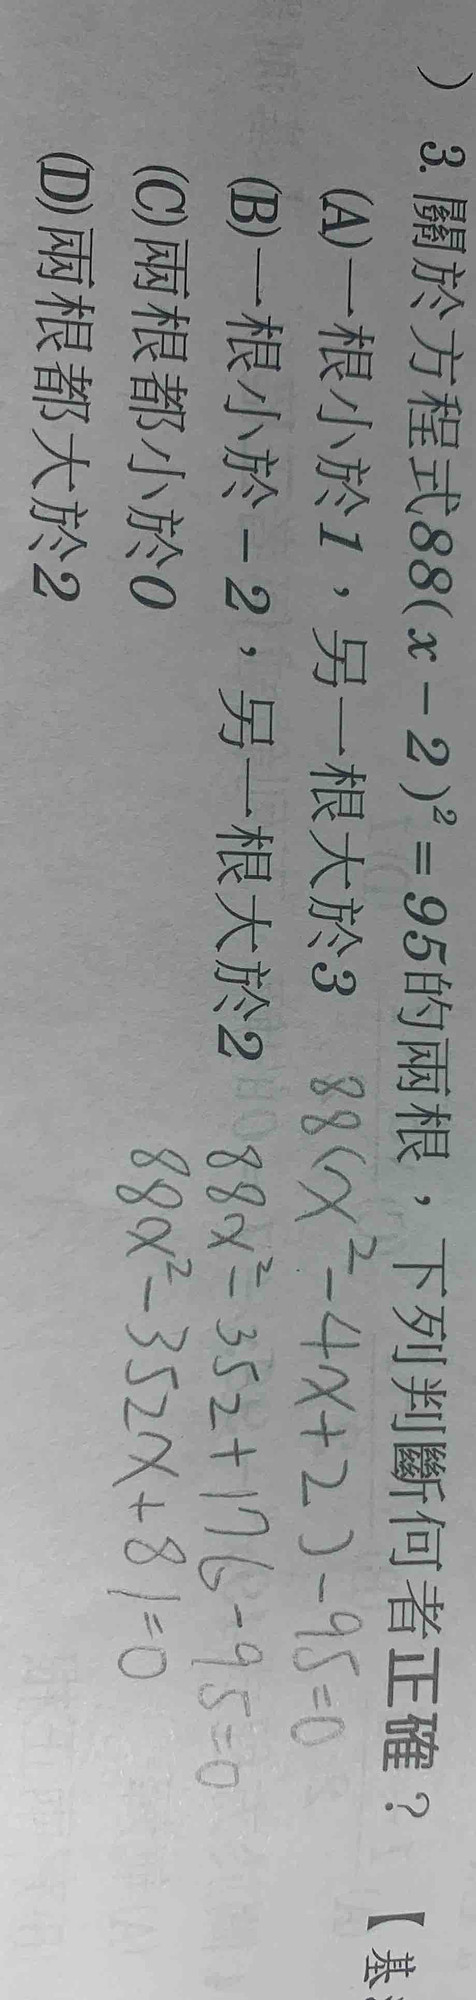 ) 3. 關於方程式88(x－2)²＝95的兩根，下列判斷何者正確？ 【基
(A)一根小於1，另一根大於3
(B)一根小於－2，另一根大於2
(C)兩根都小於0
(D)兩根都大於2
88(x²-4x+2)-95=0
88x²-352+176-95=0
88x²-352x+81=0